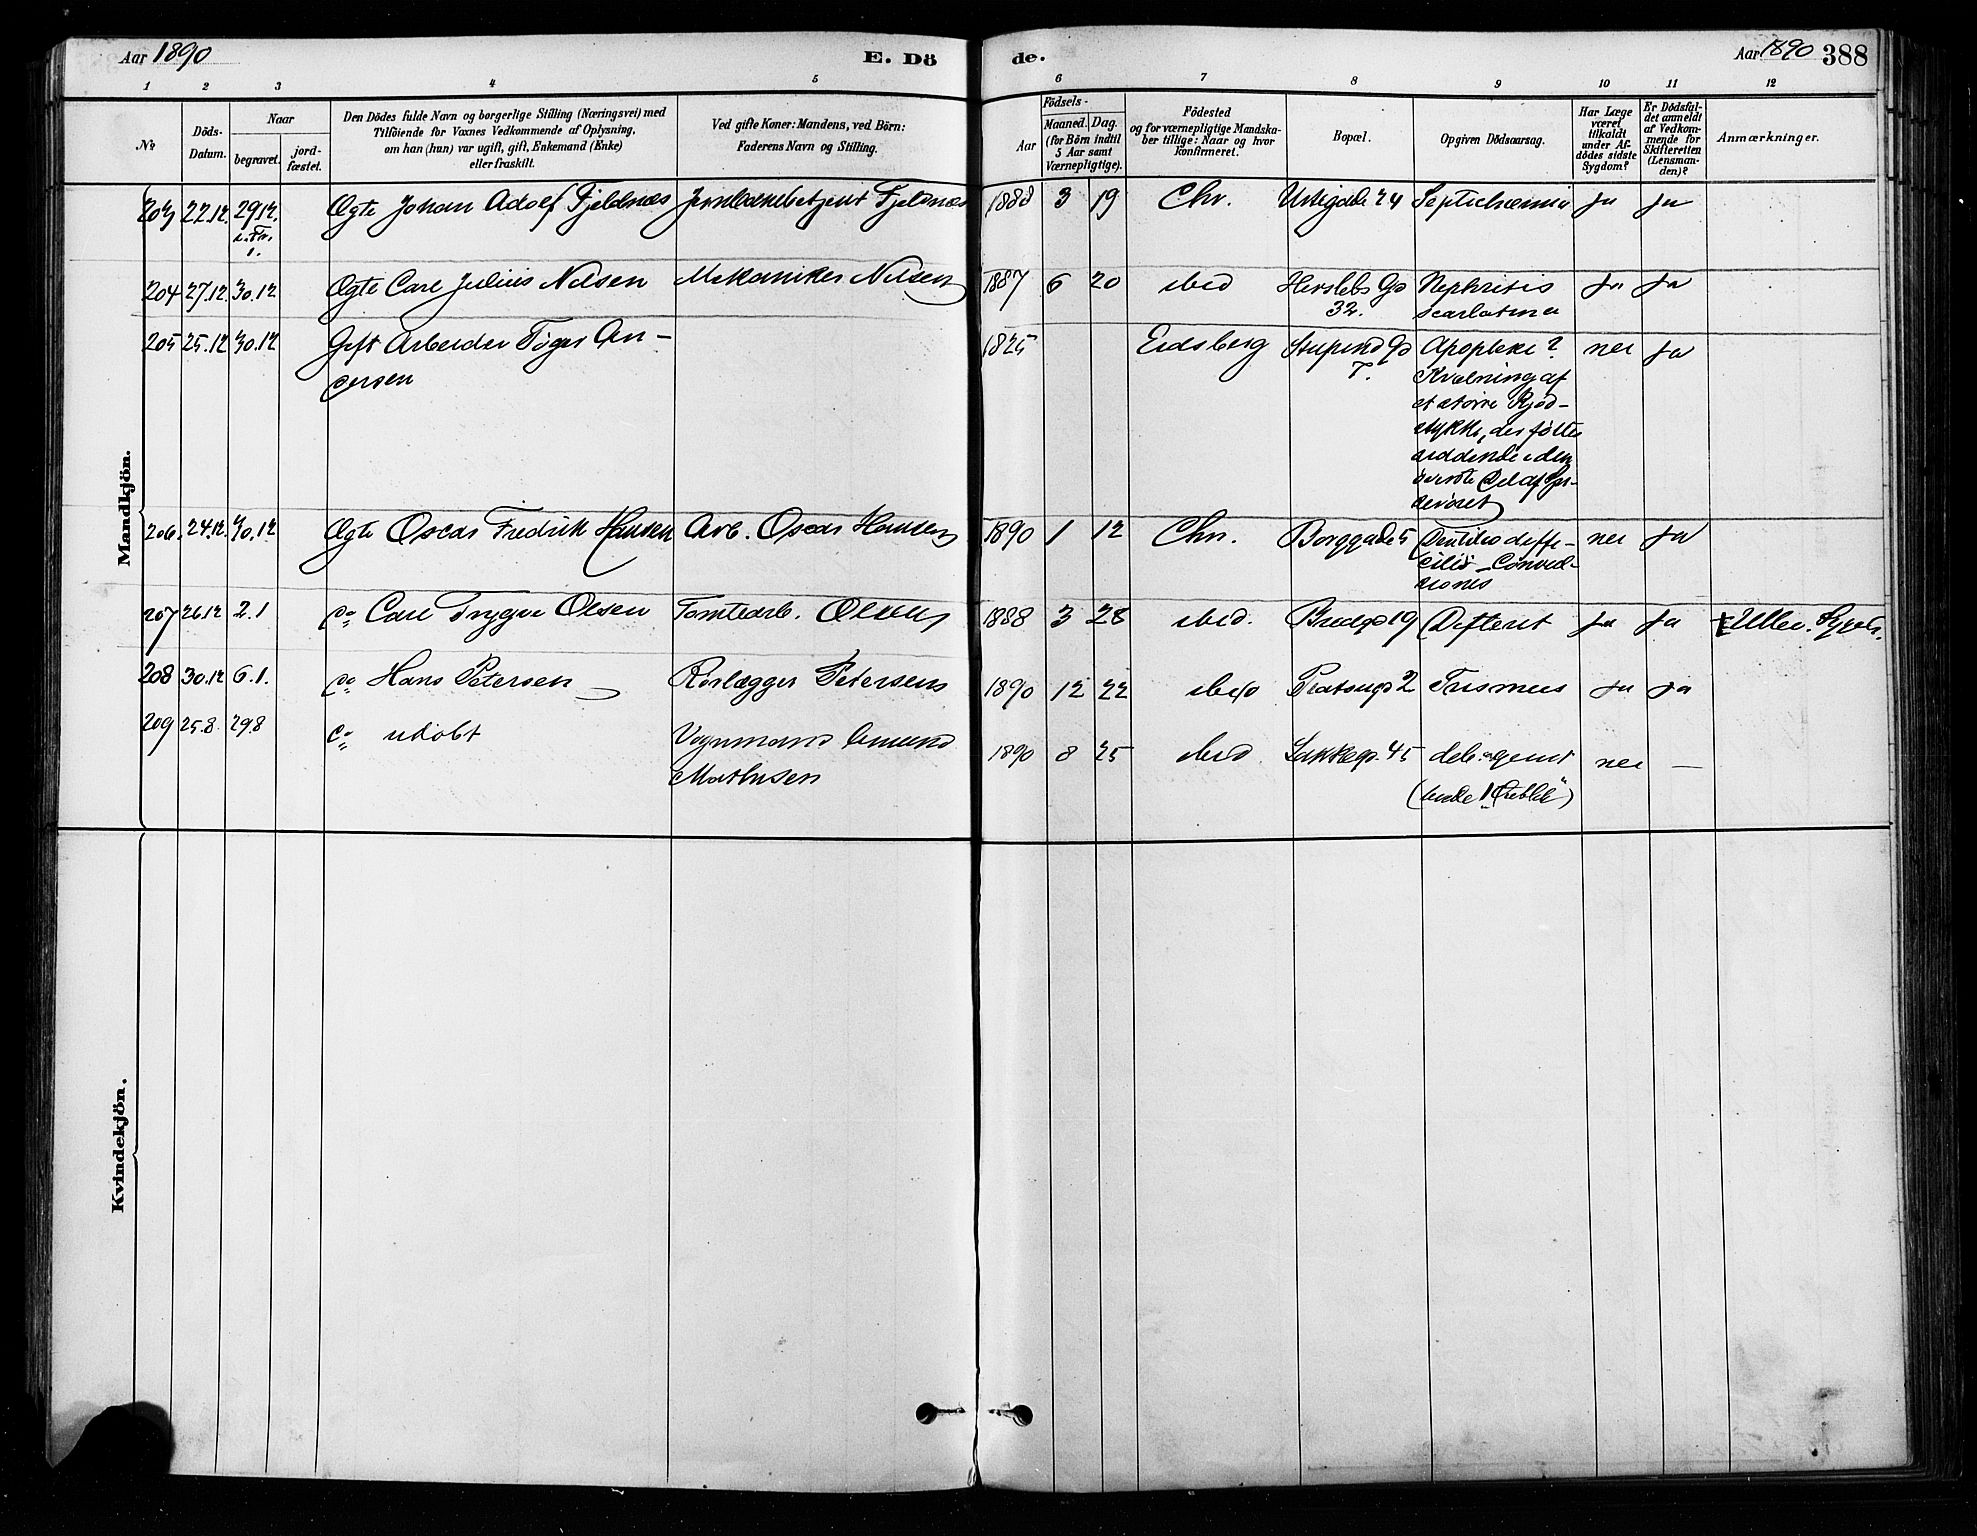 Aar 1890
E. Dö
de.
Aar 1890 388
1 2 3 4 5 6 7 8 9 10 11 12
No
Döds-
Datum.
Naar
begravet.
jord-
fæstet.
Den Dödes fulde Navn og borgerlige Stilling (Næringsvei) med
Tilföiende for Voxnes Vedkommende af Oplysning,
om han (hun) var ugift, gift, Enkemand (Enke)
eller fraskilt.
Ved gifte Koner: Mandens, ved Börn:
Faderens Navn og Stilling.
Födsels-
Aar
Maaned. Dag.
(for Börn indtil
5 Aar samt
Værnepligtige).
Födested
og for værnepligtige Mandska-
ber tillige: Naar og hvor
konfirmeret.
Bopæl.
Opgiven Dödsaarsag.
Har Læge
været
tilkaldt
under Af-
dödes sidste
Sygdom?
Er Dödsfal-
det anmeldt
af Vedkom-
mende for
Skifteretten
(Lensman-
den)?
Anmærkninger.
Mandkjön.
203 22.12. 29.12. Ægte Johan Adolf Fjeldnæs Jernbanebetjent Fjeldnæs 1888 3 19 Chr. Urtegade 24 Septichæmia ja ja
204 27.12. 30.12 Ægte Carl Julius Nilsen Mekaniker Nilsen 1887 6 20 ibid Herslebs Gd Nephritis ja ja
32. scarlatina
205 25.12 30.12 Gift Arbeider Töger An- 1825 Eidsberg Stupind Gd Apopleksi? nei ja
dersen 7. Kvælning af
et större Kjöd-
stykke, der föltes
siddende i den
överste Del af Spi-
seröret
206. 24.12. 30.12 Ægte Oscar Fredrik Hansen Arb. Oscar Hansen 1890 1 12 Chr. Borggade 5 Dentitio diffi- nei ja
cilis - Convul-
siones
207 26.12 2.1 do Carl Trygve Olsen Tomtearb. Olsen 1888 3 28 ibid. Bredgd 19 Difterit ja ja Ullev. Sygeh.
208 30.12 6.1. do Hans Petersen Rörlægger Petersen 1890 12 22 ibid 2 Trismus ja ja
209 25.8. 29.8 do udöbt Vognmand Amund 1890 8 25 ibid Lakkegd. 45 deb. genit nei —
Mathisen (levede 1 Öieblik)
Kvindekjön.